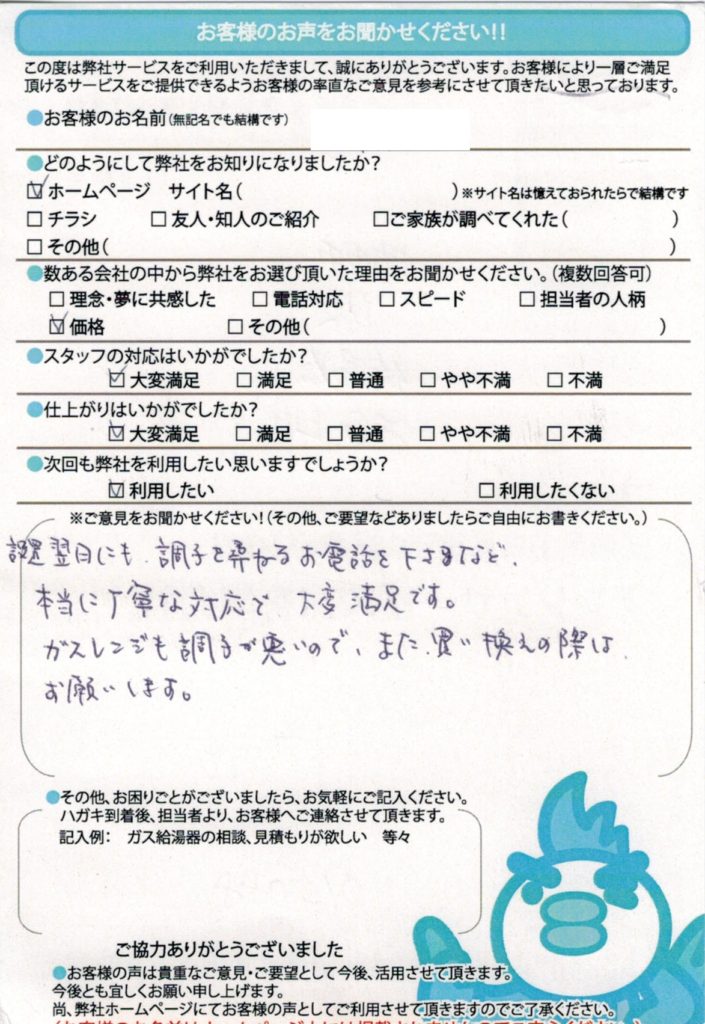 お客様のお声をお聞かせください!!
この度は弊社サービスをご利用いただきまして、誠にありがとうございます。お客様により一層ご満足
頂けるサービスをご提供できるようお客様の率直なご意見を参考にさせて頂きたいと思っております。
●お客様のお名前(無記名でも結構です)
●どのようにして弊社をお知りになりましたか?
☑ホームページ サイト名( )※サイト名は憶えておられたらで結構です
□チラシ □友人・知人のご紹介 □ご家族が調べてくれた( )
□その他( )
●数ある会社の中から弊社をお選び頂いた理由をお聞かせください。(複数回答可)
□理念・夢に共感した □電話対応 □スピード □担当者の人柄
☑価格 □その他( )
●スタッフの対応はいかがでしたか?
☑大変満足 □満足 □普通 □やや不満 □不満
●仕上がりはいかがでしたか?
☑大変満足 □満足 □普通 □やや不満 □不満
●次回も弊社を利用したい思いますでしょうか?
☑利用したい □利用したくない
※ご意見をお聞かせください!(その他、ご要望などありましたらご自由にお書きください。)
設置翌日にも、調子を尋ねるお電話を下さるなど、
本当に丁寧な対応で、大変満足です。
ガスレンジも調子が悪いので、また、買い換えの際は、
お願いします。
●その他、お困りごとがございましたら、お気軽にご記入ください。
ハガキ到着後、担当者より、お客様へご連絡させて頂きます。
記入例: ガス給湯器の相談、見積もりが欲しい 等々
ご協力ありがとうございました
●お客様の声は貴重なご意見・ご要望として今後、活用させて頂きます。
今後とも宜しくお願い申し上げます。
尚、弊社ホームページにてお客様の声としてご利用させて頂きますのでご了承ください。